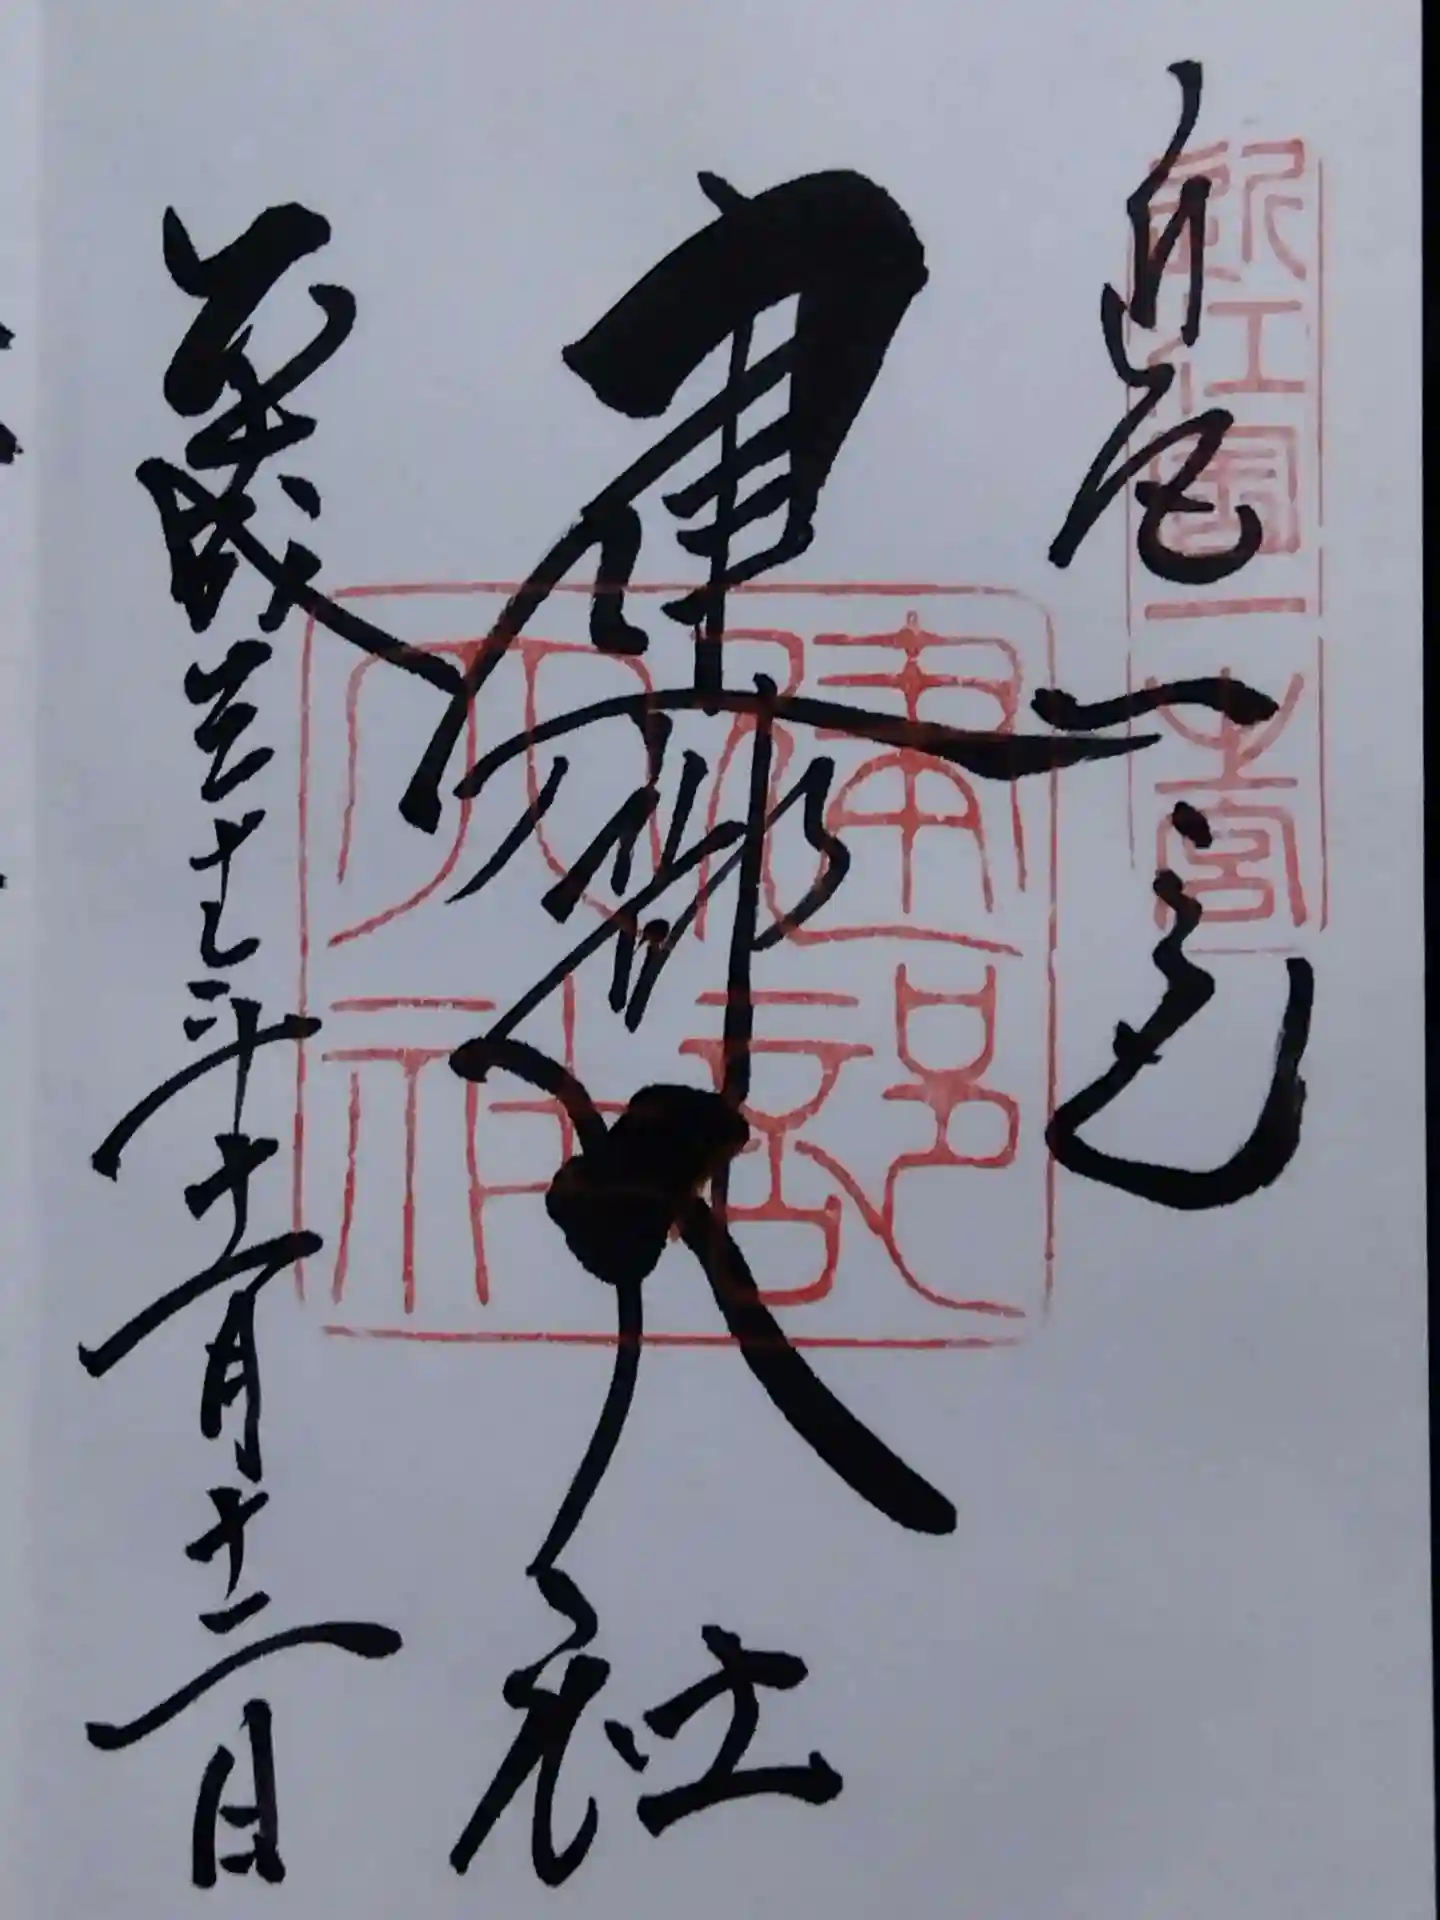 近江國一之宮
一之宮
建部大社
平成二十七年十一月十二日
建部大社